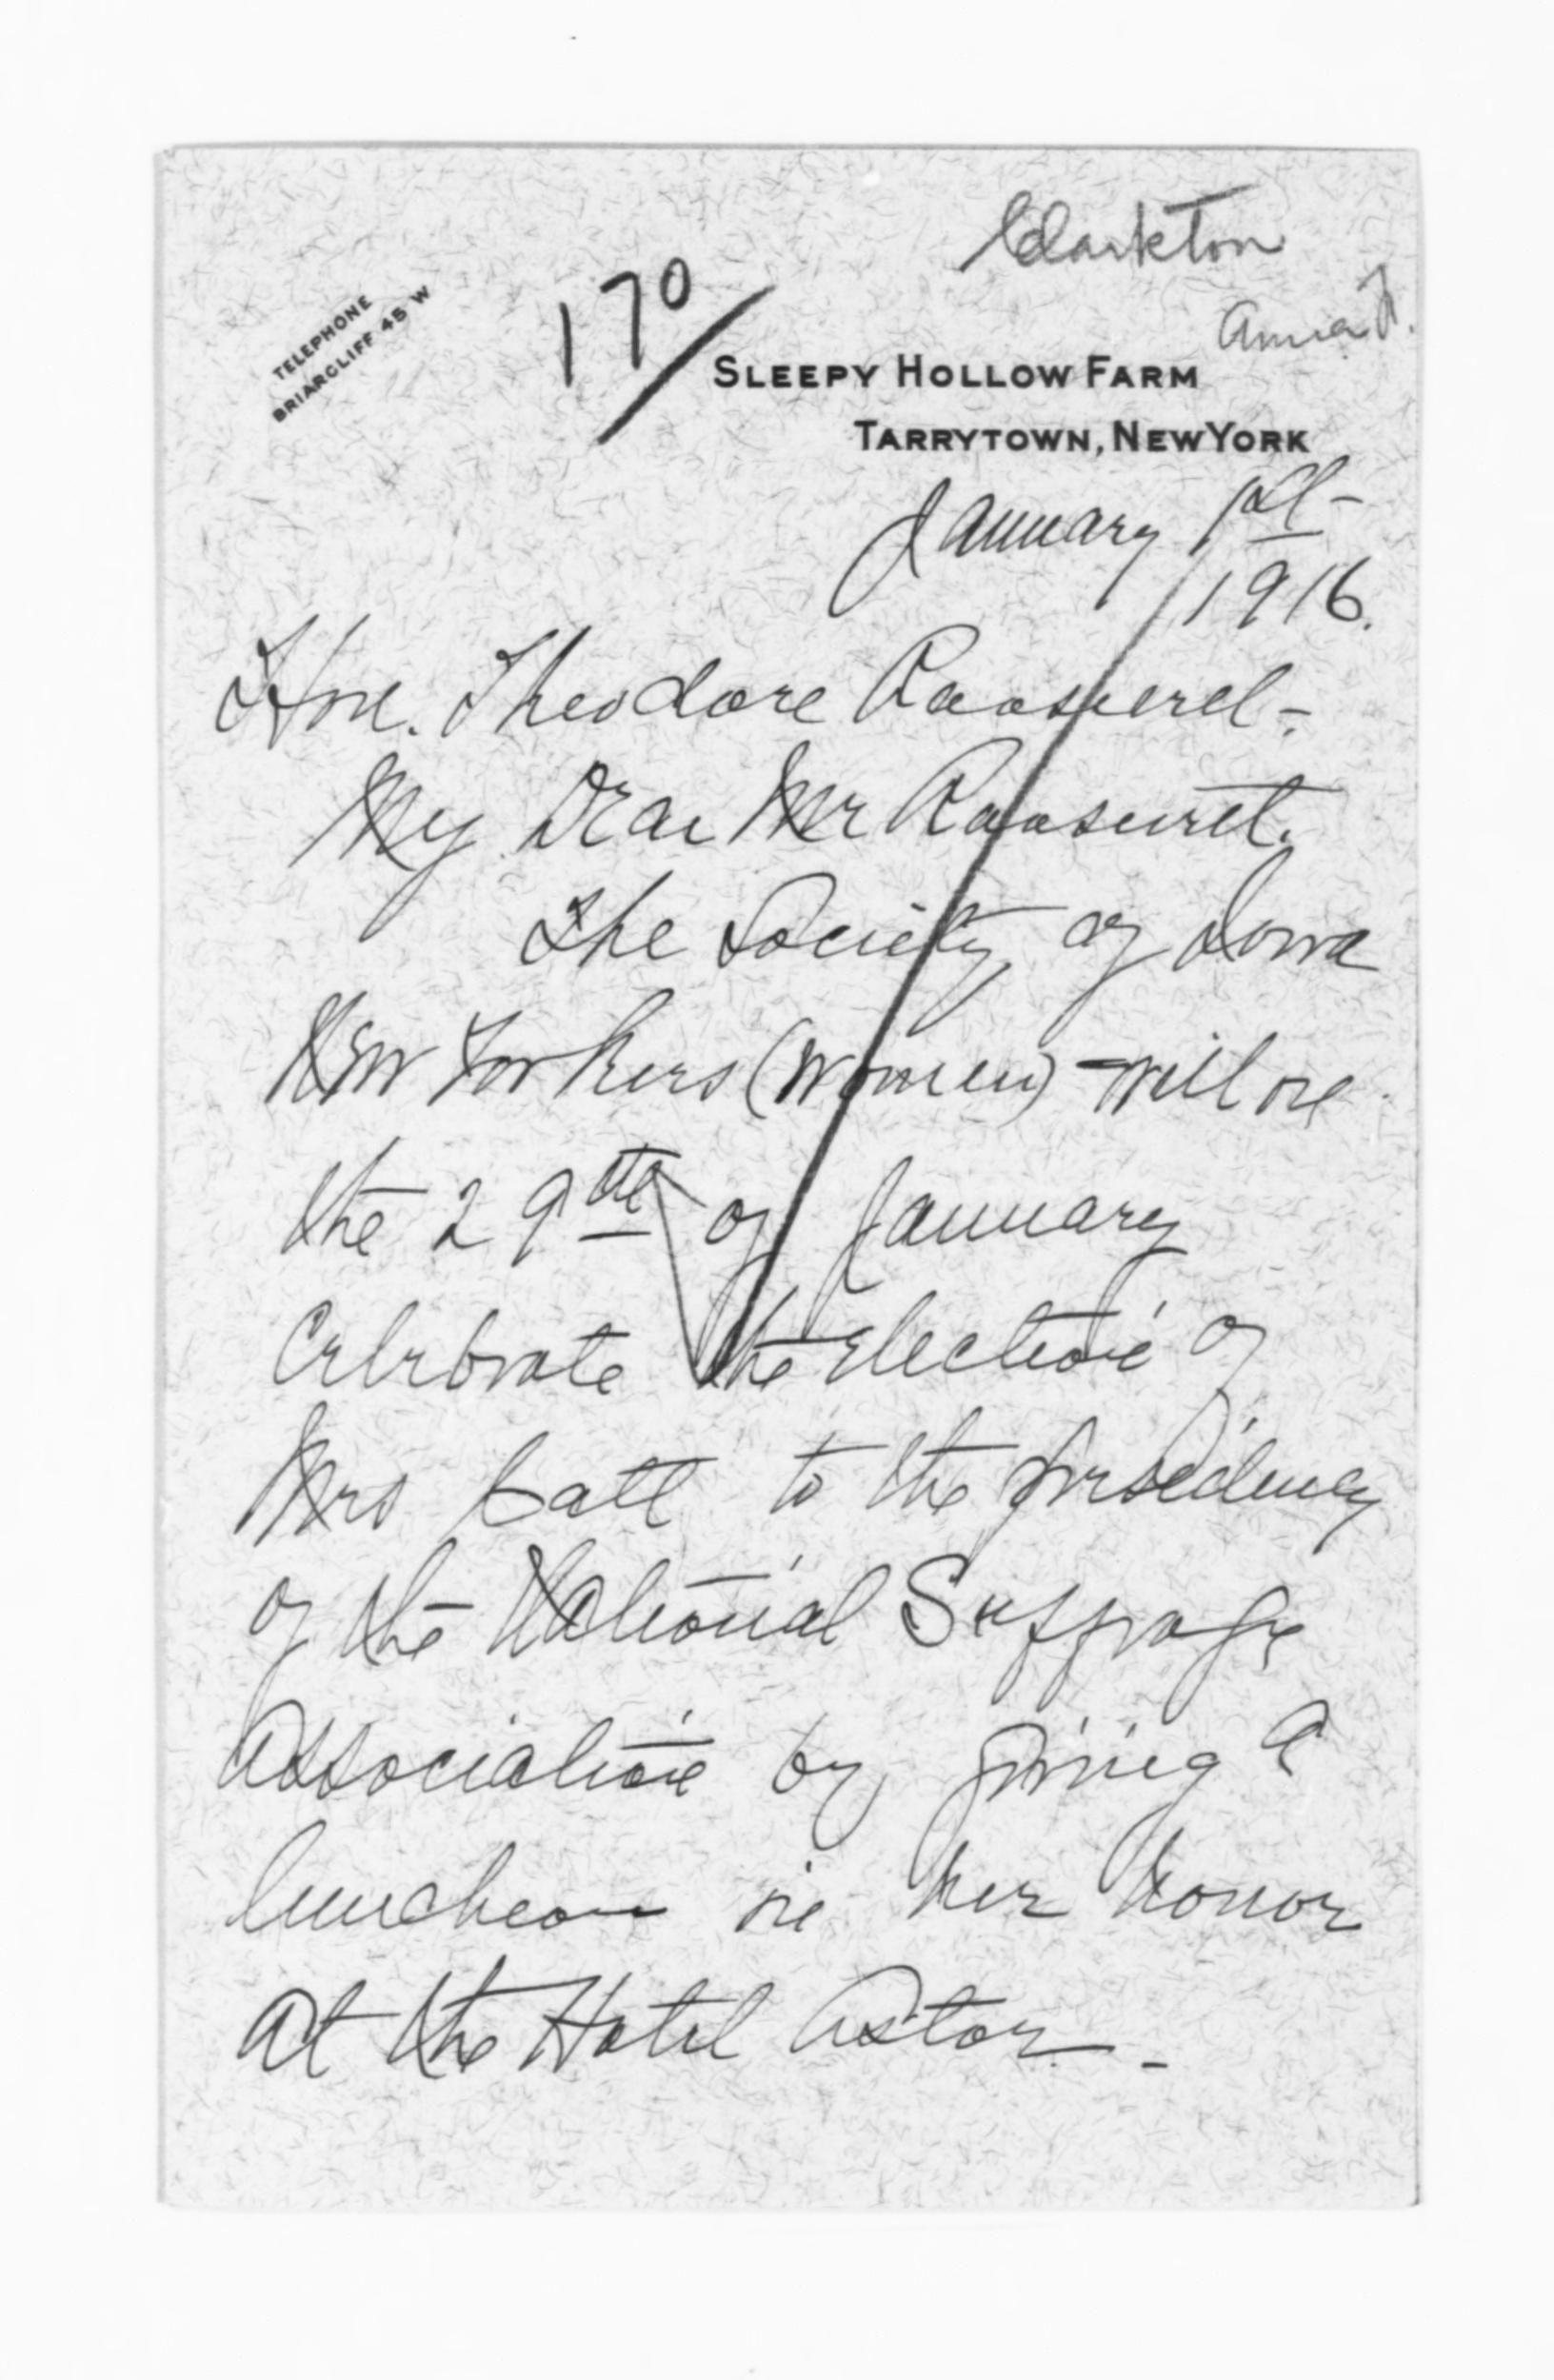 Clarkton
Anna F.
170
TELEPHONE
BRIARCLIFF 45 W
SLEEPY HOLLOW FARM
TARRYTOWN, NEW YORK
January 1st
1916.
Hon. Theodore Roosevelt-
My Dear Mr Roosevelt.
The Society of Iowa
New Yorkers (Women) - will on
the 29th of January
Celebrate the Election of
Mrs Catt to the presidency
of the National Suffrage
Association by giving a
luncheon in her honor
at the Hotel Astor -